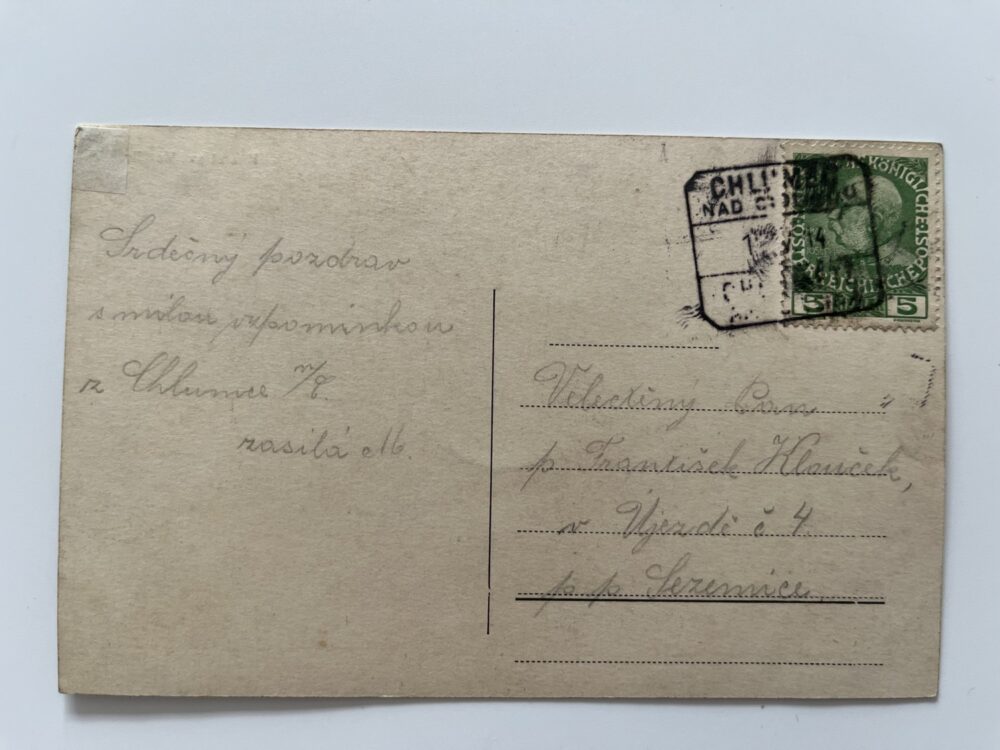 Srdečný pozdrav
s milou vzpomínkou
z Chlumce n/C.
zasílá M.
CHLUMEC
NAD CIDLINOU
14
KÖNIGLICHE ÖST
5 5
Veletěný Pan
p František Klouček,
v Újezdě č 4
p. p. Sezemice,